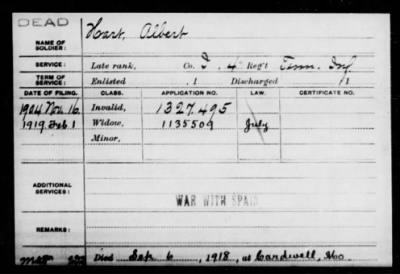 DEAD
NAME OF SOLDIER: Hart, Albert
SERVICE: Late rank, Co. I, 4" Reg't Tenn. Inf.
TERM OF SERVICE: Enlisted , 1 Discharged , 1
DATE OF FILING. CLASS. APPLICATION NO. LAW. CERTIFICATE NO.
1904 Nov. 16. Invalid, 1327.495
1919 Feb 1 Widow, 1135509 July
Minor,
ADDITIONAL SERVICES:
WAR WITH SPAIN
REMARKS:
Died Sep. 6, 1918, at Cardwell, Mo.